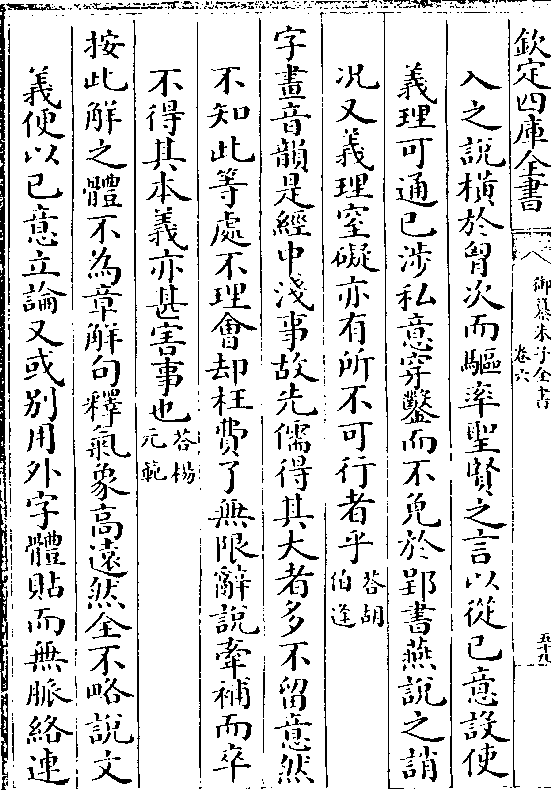 欽定四庫全書
御纂朱子全書
卷六
五十九
入之說橫於胷次而驅率聖賢之言以從已意設使
義理可通已涉私意穿鑿而不免於郢書燕說之誚
况又義理窒礙亦有所不可行者乎 答胡伯逢
字畫音韻是經中淺事故先儒得其大者多不留意然
不知此等處不理會却枉費了無限辭說牽補而卒
不得其本義亦甚害事也 答楊元範
按此解之體不為章解句釋氣象高遠然全不略說文
義便以已意立論又或别用外字體貼而無脈絡連